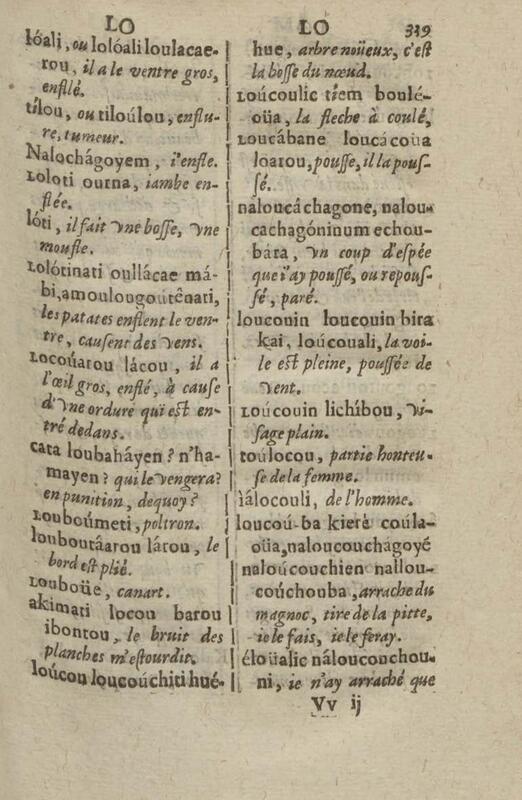 LO
lóali, ou lolóali loulacae-
rou, il a le ventre gros,
enflé.
tílou, ou tiloúlou, enflu-
re, tumeur.
Nalochágoyem, i'enfle.
Loloti ourna, iambe en-
flée.
lóti, il fait vne bosse, vne
moufle.
Lolótinati oullácae má-
bi, amoulougoutênati,
les patates enflent le ven-
tre, causent des vens.
Locoúarou lácou, il a
l'œil gros, enflé, à cause
d'vne ordure qui est en-
tré dedans.
cata loubaháyen? n'ha-
mayen? qui le vengera?
en punition, dequoy?
Louboúmeti, poltron.
louboutáarou lárou, le
bord est plié.
Louboüe, canart.
akimati locou barou
ibontou, le bruit des
planches m'estourdit.
loúcou loucoúchiti hué-
LO 319
hue, arbre noüeux, c'est
la bosse du nœud.
Loúcoulic tíem boulé-
oüa, la fleche à coulé,
Loucábane loucácoüa
loarou, pousse, il la pous-
sé.
naloucáchagone, nalou-
cachagóninum echou-
bára, vn coup d'espée
que i'ay poussé, ou repous-
sé, paré.
loucouin loucouin bira
kai, loúcouali, la voi-
le est pleine, poussée de
vent.
Loúcouin lichíbou, vi-
sage plain.
toúlocou, partie honteu-
se de la femme.
ìálocouli, de l'homme.
loucoú-ba kierè coúla-
oüa, naloucouchágoyé
naloúcouchien nallou-
coúchouba, arrache du
magnoc, tire de la pitte,
ie le fais, ie le feray.
éloüalic náloucouchou-
ni, ie n'ay arraché que
Vv ij